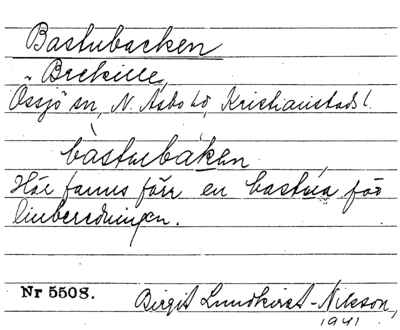 Bastubacken
Brekille,
Össjö sn, N. Åsbo hd, Kristianstads l.
bàsturbàken
Här fanns förr en bastua för
linberedningen.
Nr 5508.
Birgit Lundkvist-Nilsson,
1941